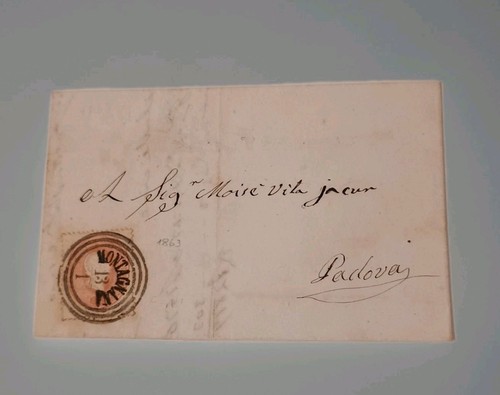 A Sig.r Moisè Vita jacur
1863
Padova
MONTAGNANA
13
1